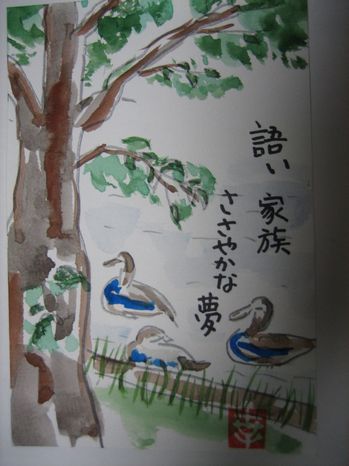 語い 家族
ささやかな
夢